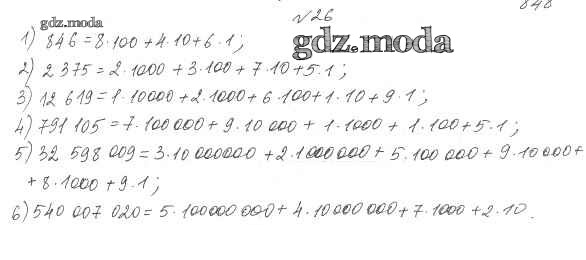 848
gdz.moda №26
1) 846 = 8·100 + 4·10 + 6·1;
gdz.moda
2) 2 375 = 2·1000 + 3·100 + 7·10 + 5·1;
3) 12 619 = 1·10000 + 2·1000 + 6·100 + 1·10 + 9·1;
4) 791 105 = 7·100 000 + 9·10 000 + 1·1000 + 1·100 + 5·1;
5) 32 598 009 = 3·10 000000 + 2·1000 000 + 5·100 000 + 9·10 000 +
+ 8·1000 + 9·1;
6) 540 007 020 = 5·100000 000 + 4·10 000 000 + 7·1000 + 2·10.